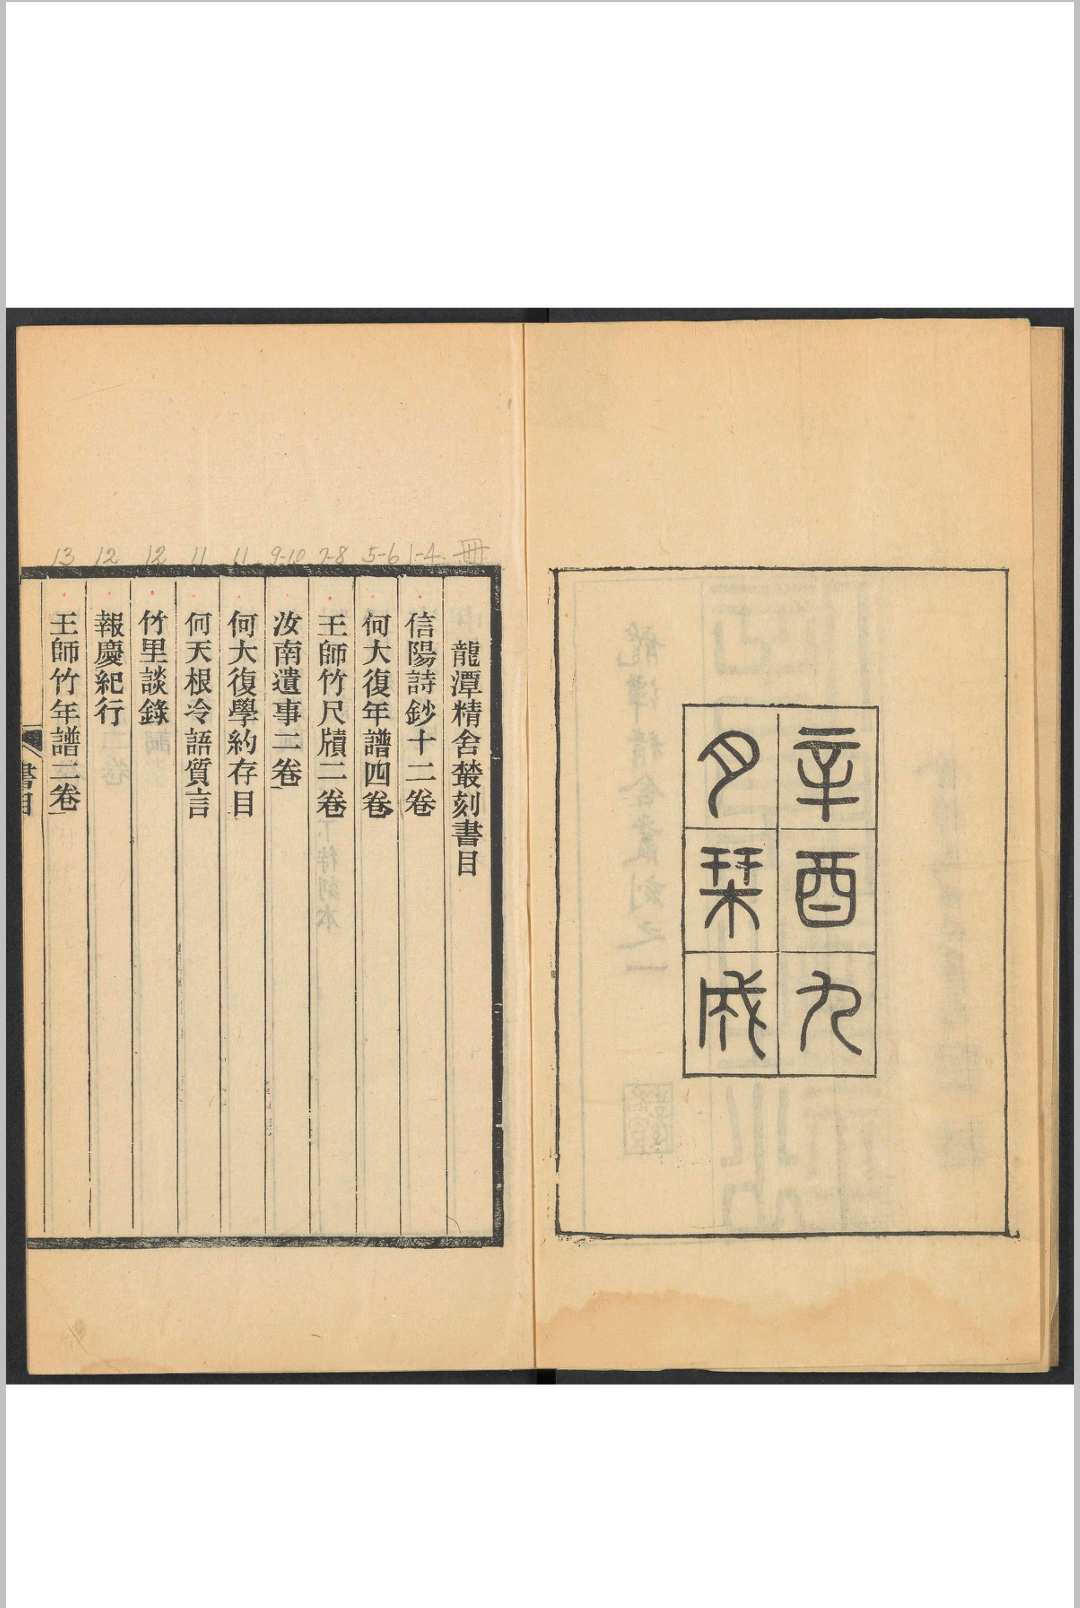 辛酉九
月栞成
冊
龍潭精舍叢刻書目
1-4
信陽詩鈔十二卷
5-6
何大復年譜四卷
7-8
王師竹尺牘二卷
9-10
汝南遺事二卷
11
何大復學約存目
11
何天根冷語質言
12
竹里談錄
12
報慶紀行
13
王師竹年譜三卷
書目
龍潭精舍叢刻之一
下待刻本